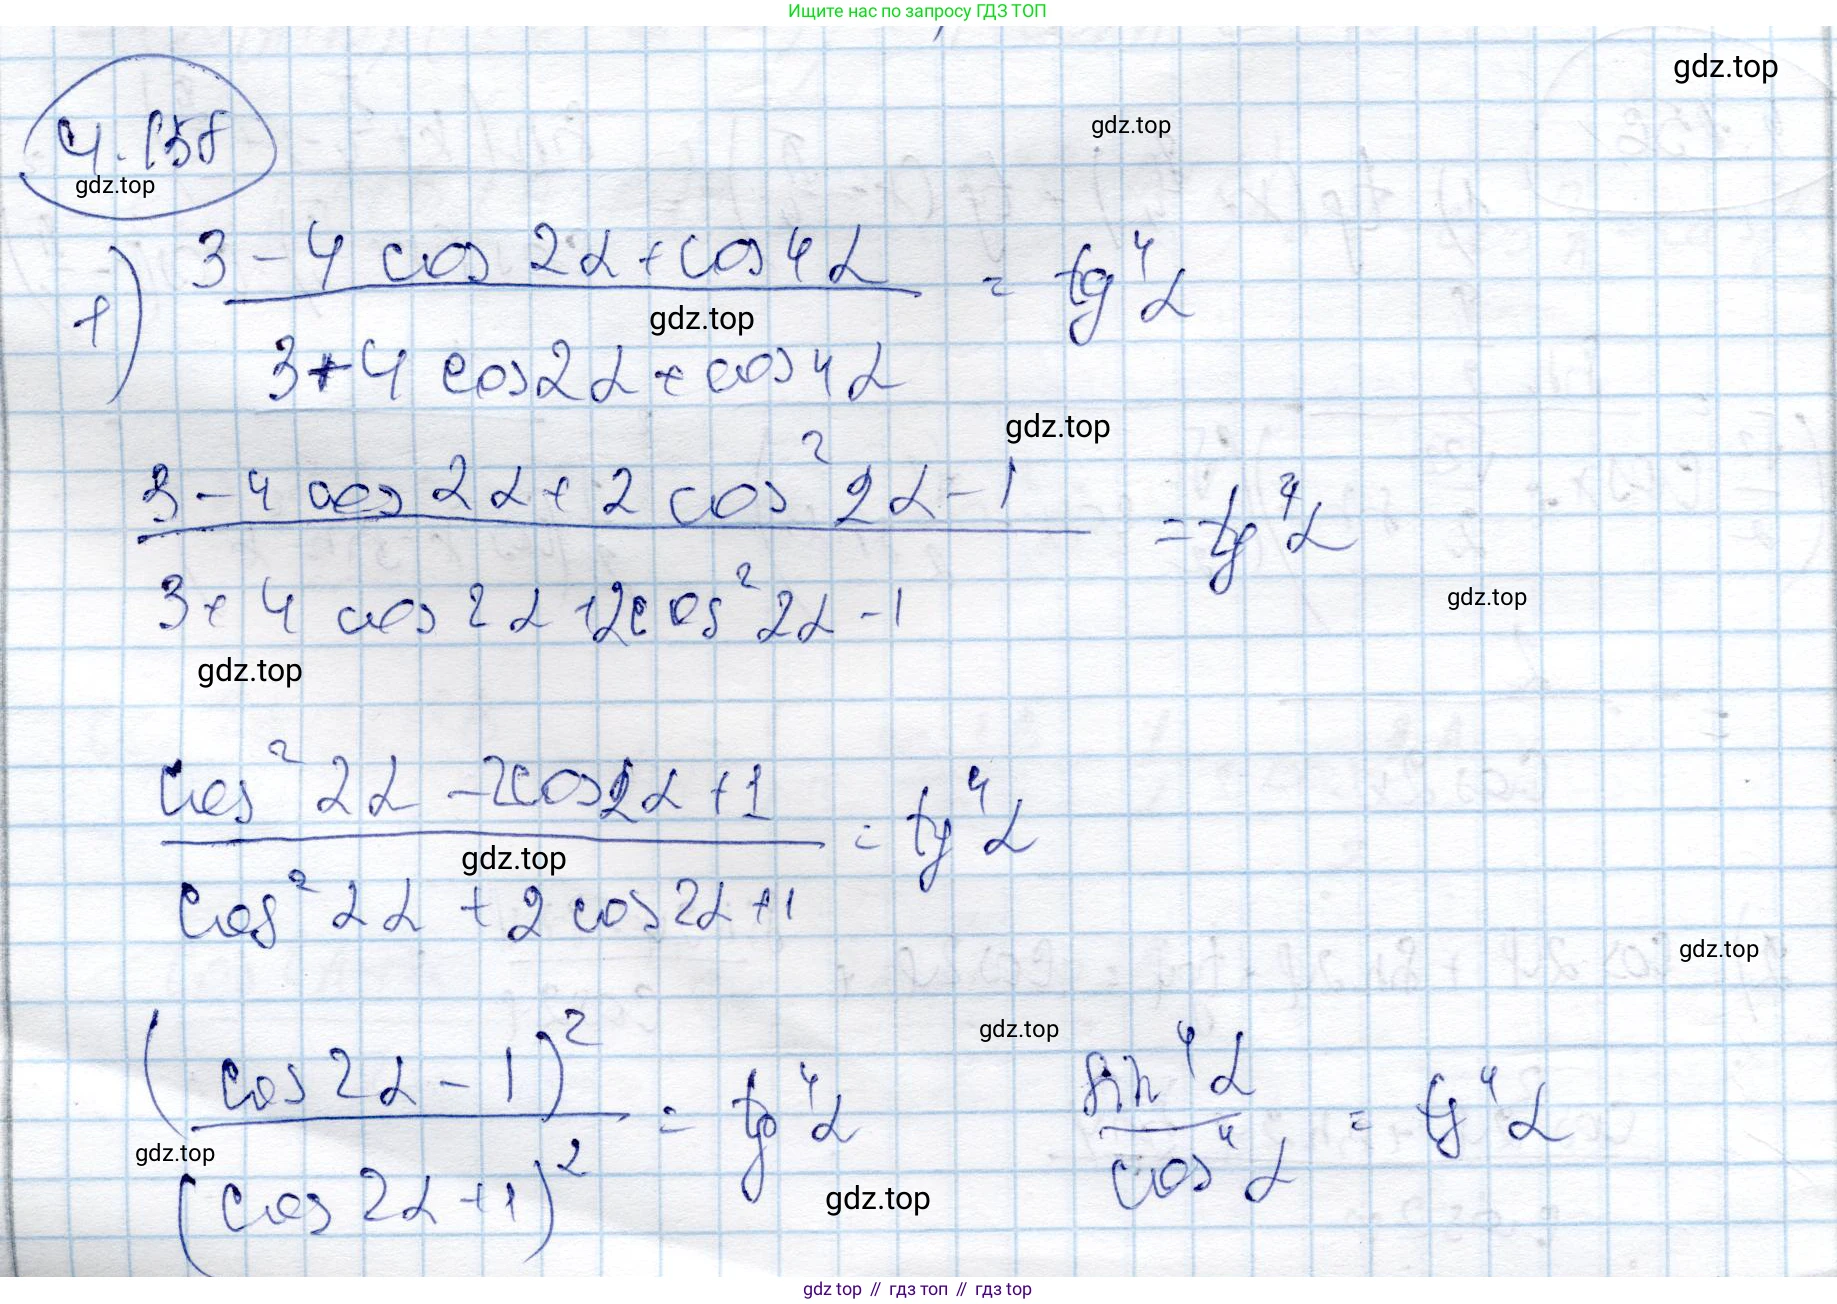 Ищите нас по запросу ГДЗ ТОП
gdz.top
4.158
gdz.top
gdz.top
1) (3 - 4 cos 2α + cos 4α) / (3 + 4 cos 2α + cos 4α) = tg⁴ α
gdz.top
gdz.top
(3 - 4 cos 2α + 2 cos² 2α - 1) / (3 + 4 cos 2α + 2 cos² 2α - 1) = tg⁴ α
gdz.top
gdz.top
(cos² 2α - 2cos 2α + 1) / (cos² 2α + 2 cos 2α + 1) = tg⁴ α
gdz.top
gdz.top
gdz.top
(cos 2α - 1)² / (cos 2α + 1)² = tg⁴ α    sin⁴ α / cos⁴ α = tg⁴ α
gdz.top
gdz.top
gdz top // гдз топ // гдз top